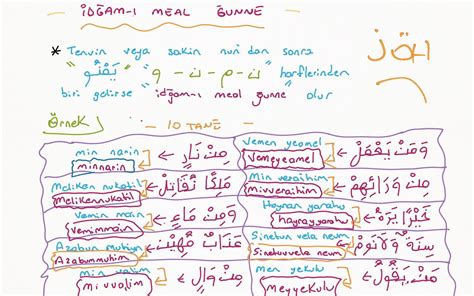 — İDĞAM-I MEAL GUNNE —
* Tenvin veya sakin nun dan sonra
" يَمْنُو " " ي - م - ن - و " harflerinden
biri gelirse idğam-ı meal gunne olur
Örnek
— 10 TANE —
min narin
minnarin ← مِنْ نَارٍ
Meliken nukatil
Melikennukatil ← مَلِكًا نُقَاتِلْ
vemin main
vemimmain ← وَمِنْ مَاءٍ
Azabun muhiyn
Azabummuhiyn ← عَذَابٌ مُهِينٌ
min valin
mivvalin ← مِنْ وَالٍ
Vemen yeamel
Vemeyyeamel ← وَمَنْ يَعْمَلْ
Min veraihim
mivveraihim ← مِنْ وَرَائِهِمْ
Hayran yarahu
hayrayyarahu ← خَيْرًا يَرَهُ
Sinetun vela nevm
Sinetuvvela nevm ← سِنَةٌ وَلَا نَوْمٌ
men yekulu
meyyekulu ← مَنْ يَقُولُ